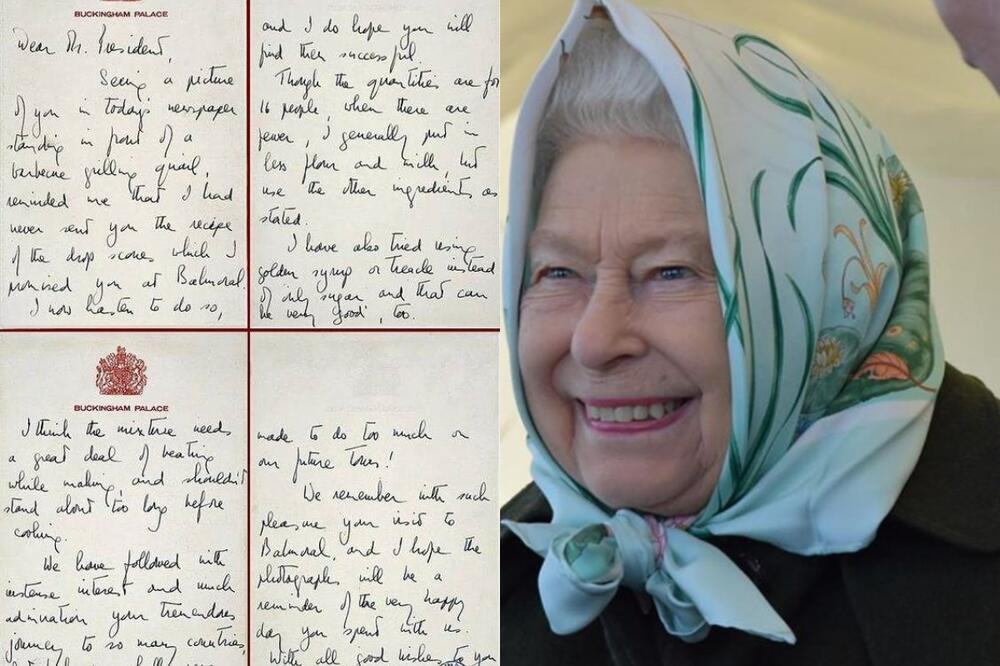 BUCKINGHAM PALACE
Dear Mr. President,
Seeing a picture
of you in today's newspaper
standing in front of a
barbecue grilling quail,
reminded me that I had
never sent you the recipe
of the drop scones which I
promised you at Balmoral.
I now hasten to do so,
and I do hope you will
find them successful.
Though the quantities are for
16 people, when there are
fewer, I generally put in
less flour and milk, but
use the other ingredients as
stated.
I have also tried using
golden syrup or treacle instead
of only sugar and that can
be very good, too.
BUCKINGHAM PALACE
I think the mixture needs
a great deal of beating
while making, and shouldn't
stand about too long before
cooking.
We have followed with
intense interest and much
admiration your tremendous
journey to so many countries,
made to do too much on
our future tours!
We remember with such
pleasure your visit to
Balmoral, and I hope the
photographs will be a
reminder of the very happy
day you spent with us.
With all good wishes to you